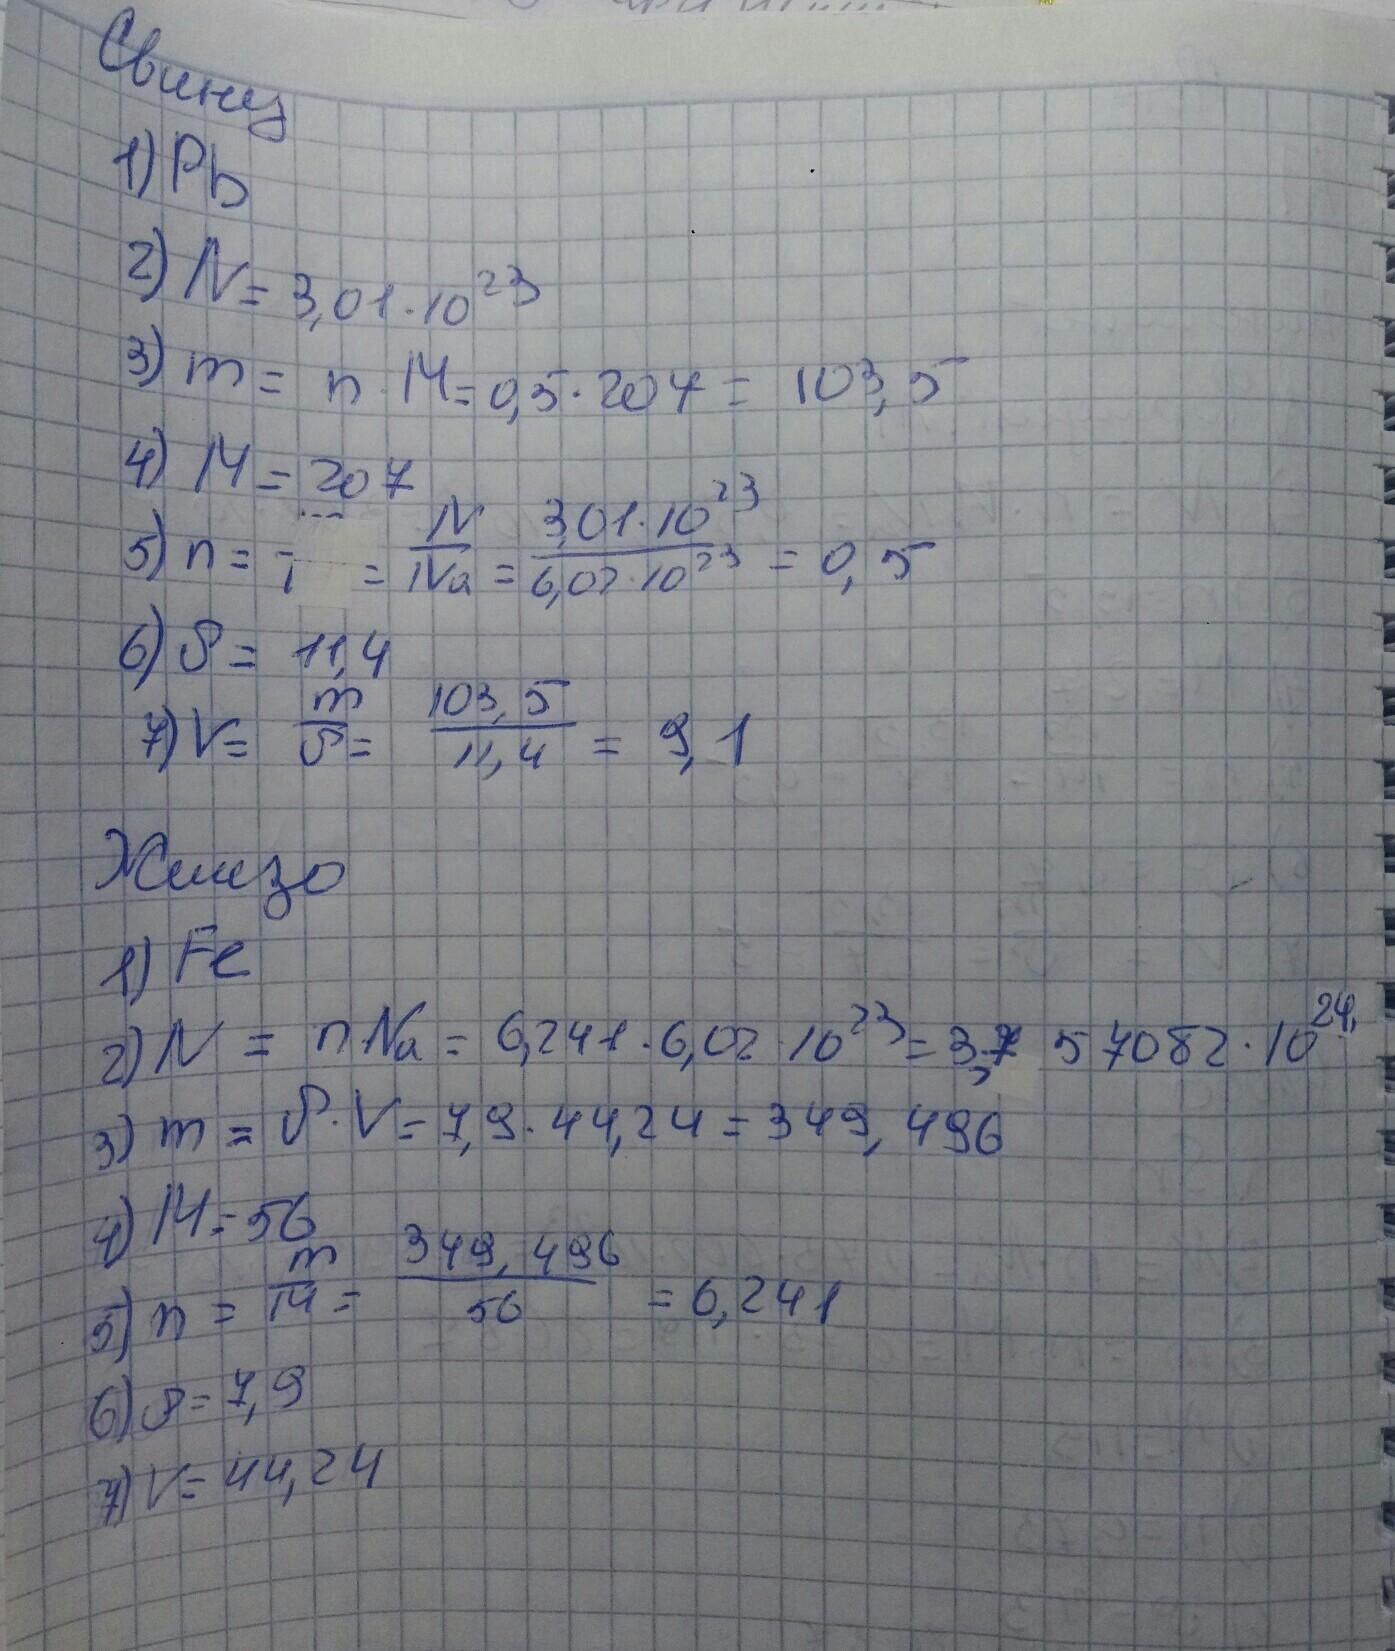 Свинец
1) Pb
2) N = 3,01·10²³
3) m = n·M = 0,5·207 = 103,5
4) M = 207
5) n = = N/Na = 3,01·10²³/6,02·10²³ = 0,5
6) ρ = 11,4
7) V = m/ρ = 103,5/11,4 = 9,1
Железо
1) Fe
2) N = n Na = 6,241·6,02·10²³ = 3,757082·10²⁴
3) m = ρ·V = 7,9·44,24 = 349,496
4) M = 56
5) n = m/M = 349,496/56 = 6,241
6) ρ = 7,9
7) V = 44,24